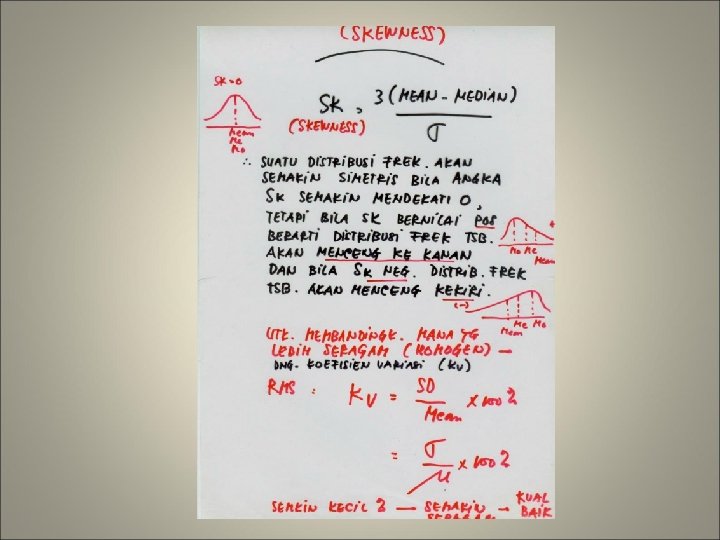 (SKEWNESS)
SK=0
SK = 3 (MEAN - MEDIAN)
σ
(SKEWNESS)
Mean
Me
Mo
∴ SUATU DISTRIBUSI FREK. AKAN
SEMAKIN SIMETRIS BILA ANGKA
SK SEMAKIN MENDEKATI 0,
TETAPI BILA SK BERNILAI POS
BERARTI DISTRIBUSI FREK TSB.
AKAN MENCENG KE KANAN
+
Mo Me
Mean
DAN BILA SK NEG. DISTRIB. FREK
TSB. AKAN MENCENG KEKIRI.
(-)
Me Mo
Mean
UTK. MEMBANDINGK. MANA YG
LEBIH SERAGAM (HOMOGEN) —
DNG. KOEFISIEN VARIASI (KV)
RMS : KV = SD
Mean
x 100 %
= σ
μ
x 100 %
SEMKIN KECIL % — SEMAKIN — KUAL
SERAGAM BAIK